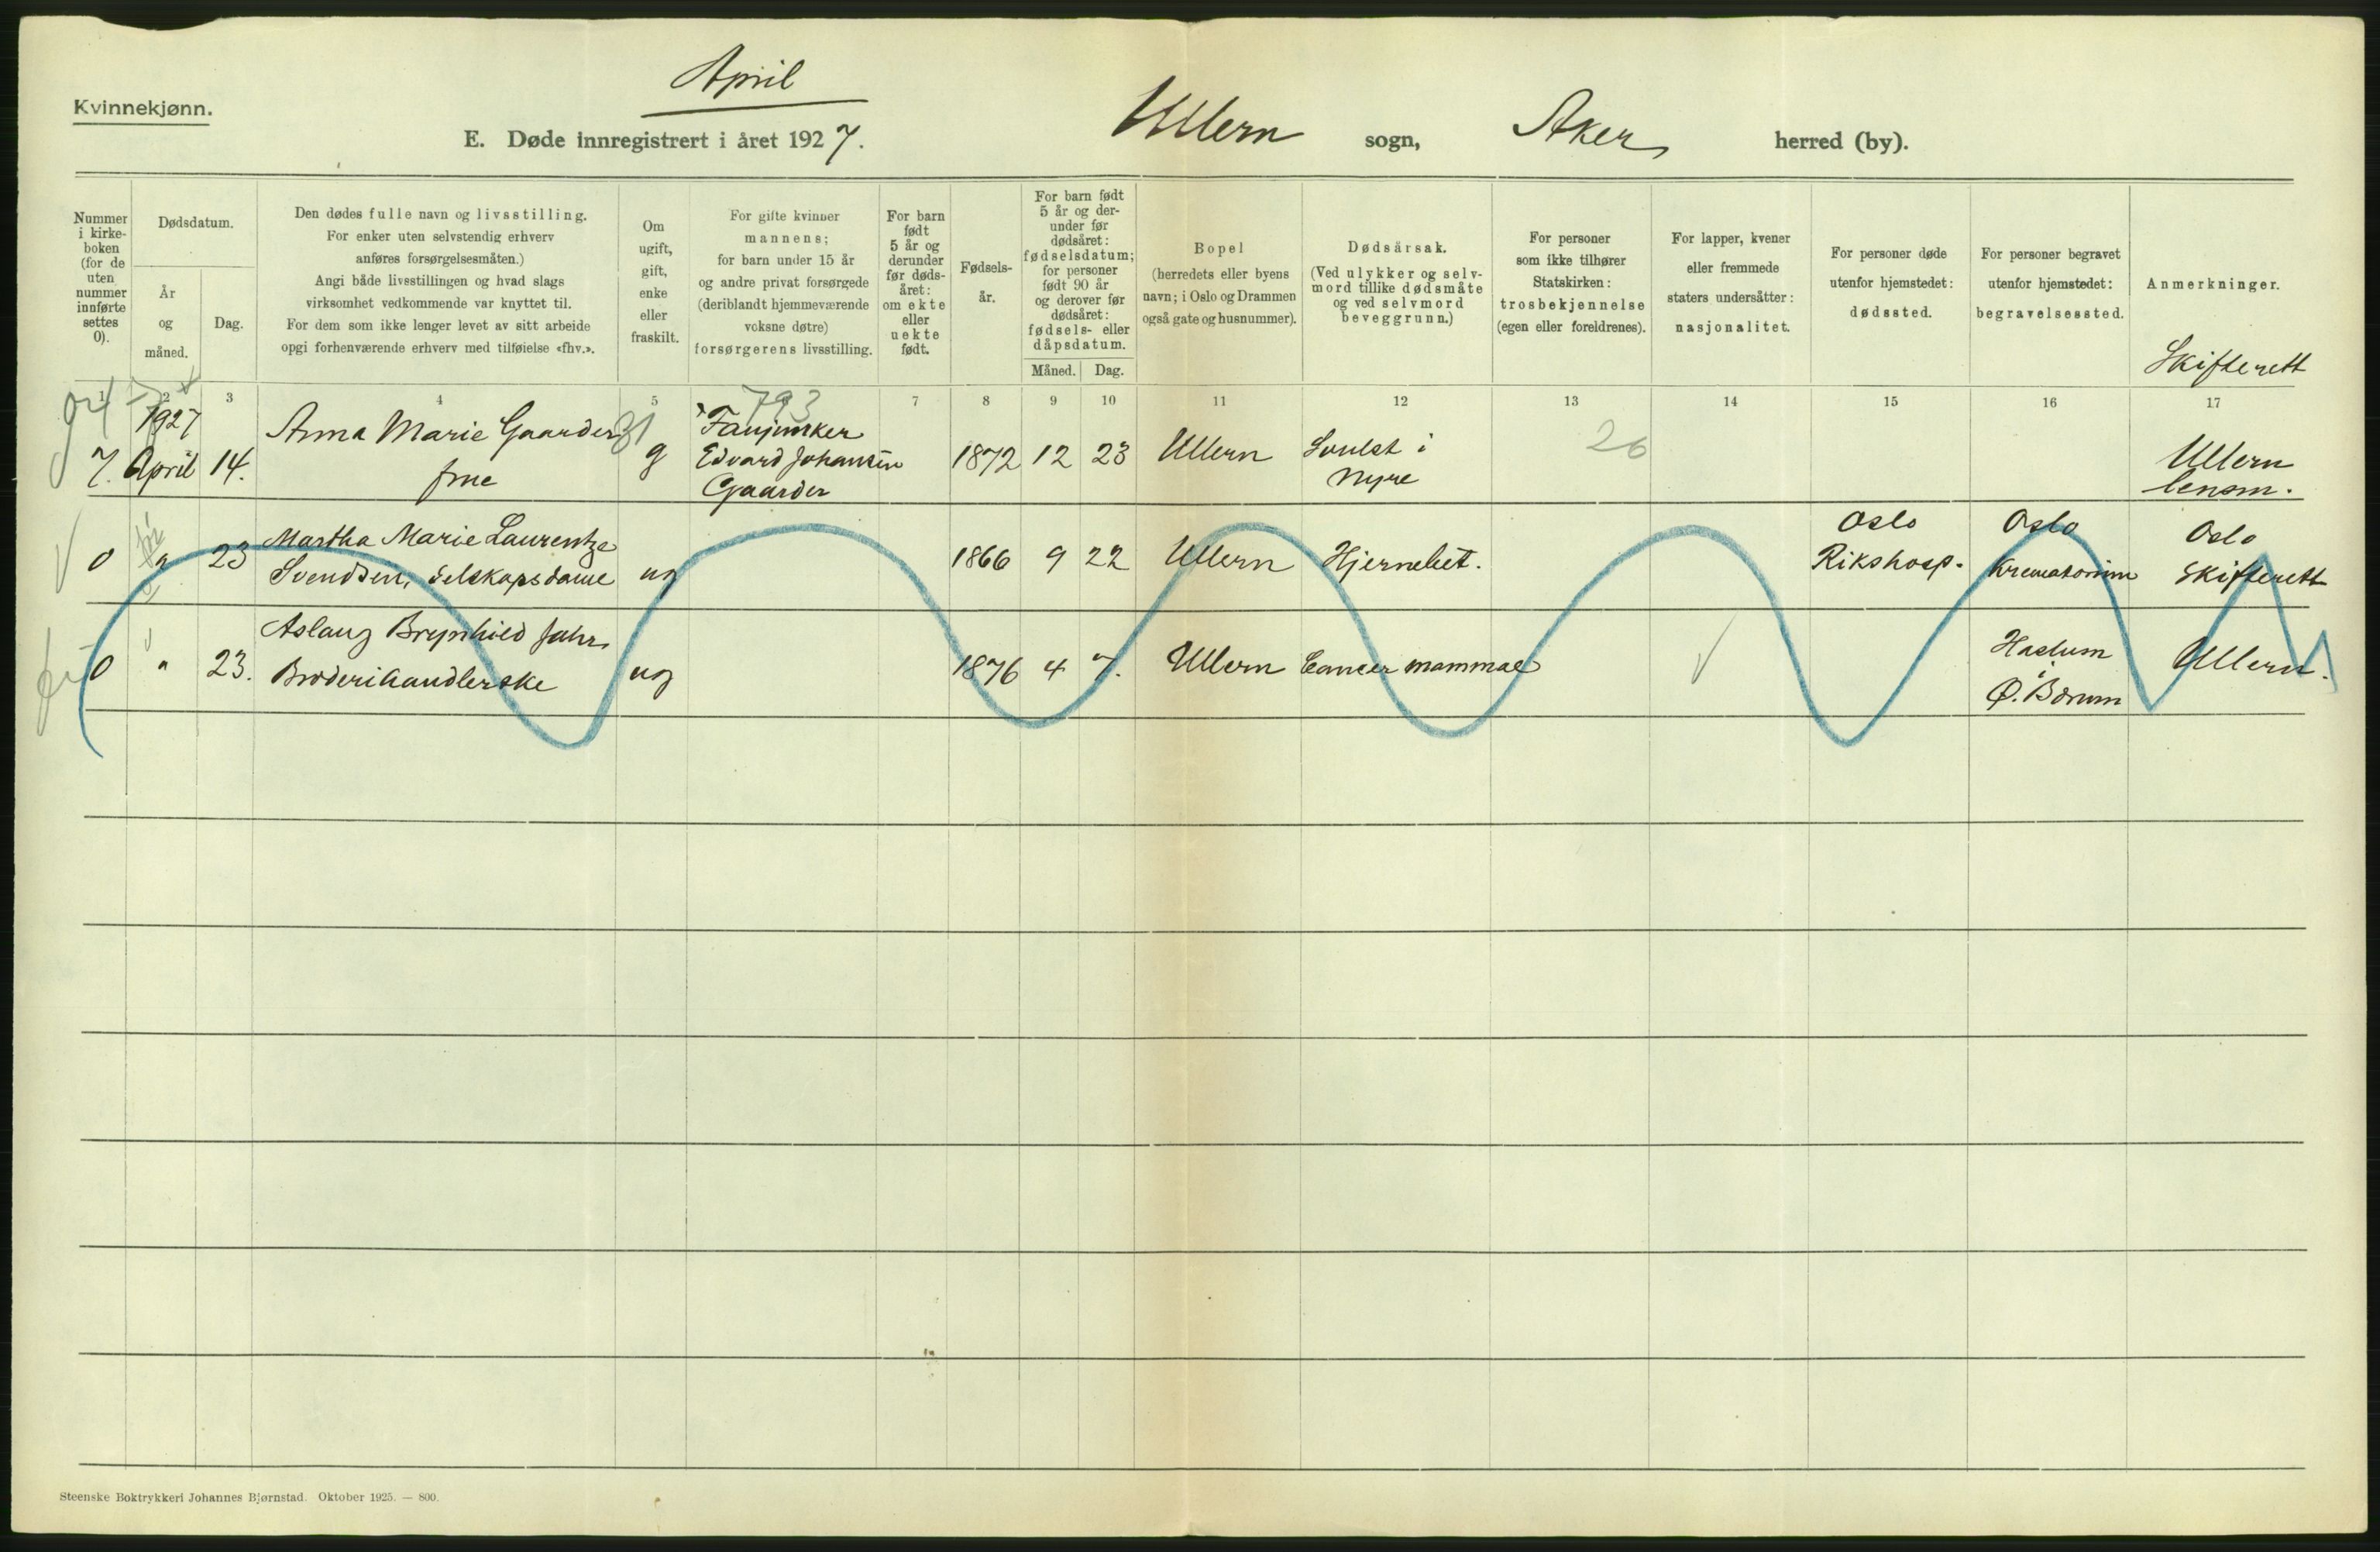 April
Kvinnekjønn.
E. Døde innregistrert i året 1927. Ullern sogn, Aker herred (by).
Nummer
i kirke-
boken
(for de
uten
nummer
innførte
settes
0).
Dødsdatum.
År
og
måned.
Dag.
Den dødes fulle navn og livsstilling.
For enker uten selvstendig erhverv
anføres forsørgelsesmåten.)
Angi både livsstillingen og hvad slags
virksomhet vedkommende var knyttet til.
For dem som ikke lenger levet av sitt arbeide
opgi forhenværende erhverv med tilføielse «fhv.».
Om
ugift,
gift,
enke
eller
fraskilt.
For gifte kvinner
mannens;
for barn under 15 år
og andre privat forsørgede
(deriblandt hjemmeværende
voksne døtre)
forsørgerens livsstilling.
For barn
født
5 år og
derunder
før døds-
året:
om ekte
eller
uekte
født.
Fødsels-
år.
For barn født
5 år og der-
under før
dødsåret:
fødselsdatum;
for personer
født 90 år
og derover før
dødsåret:
fødsels- eller
dåpsdatum.
Måned. Dag.
Bopel
(herredets eller byens
navn; i Oslo og Drammen
også gate og husnummer).
Dødsårsak.
(Ved ulykker og selv-
mord tillike dødsmåte
og ved selvmord
beveggrunn.)
For personer
som ikke tilhører
Statskirken:
trosbekjennelse
(egen eller foreldrenes).
For lapper, kvener
eller fremmede
staters undersåtter:
nasjonalitet.
For personer døde
utenfor hjemstedet:
dødssted.
For personer begravet
utenfor hjemstedet:
begravelsessted.
Anmerkninger.
Skifterett
1 2 3 4 5 7 8 9 10 11 12 13 14 15 16 17
793
1927
7. April 14.
Anna Marie Gaarder
frue
g
Fanejunker
Edvard Johansen
Gaarder
1872 12 23 Ullern
Svulst i
Nyre
26
Ullern
lensm.
0 " 23
Martha Marie Laurentze
Svendsen, selskapsdame
ug
1866 9 22 Ullern Hjernebet.
Oslo
Rikshosp.
Oslo
Krematorium
Oslo
Skifterett
0 " 23.
Aslaug Brynhild Jahr
Broderihandlerske
ug
1876 4 7. Ullern Cancer mammae
Haslum
i
Ø. Bærum
Ullern.
Steenske Boktrykkeri Johannes Bjørnstad. Oktober 1925. — 800.